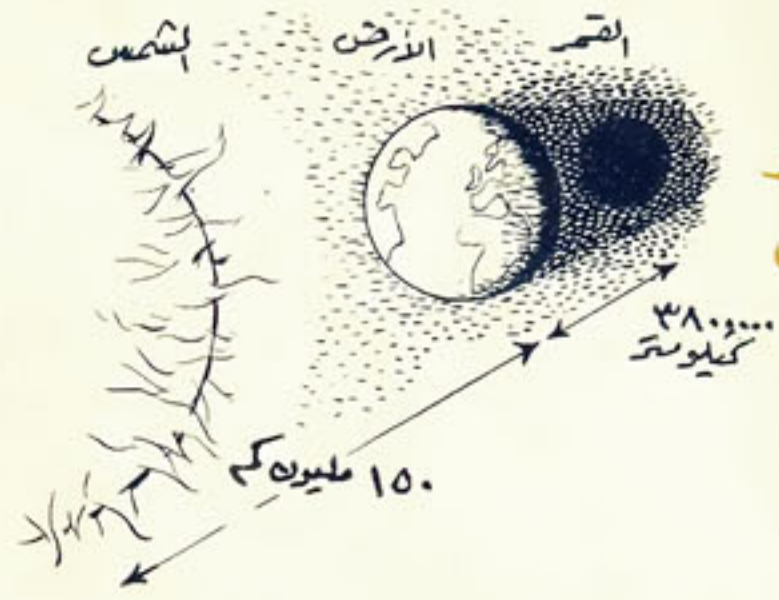 القمر
الأرض
الشمس
٣٨٠,٠٠٠
كيلومتر
١٥٠ مليون كم